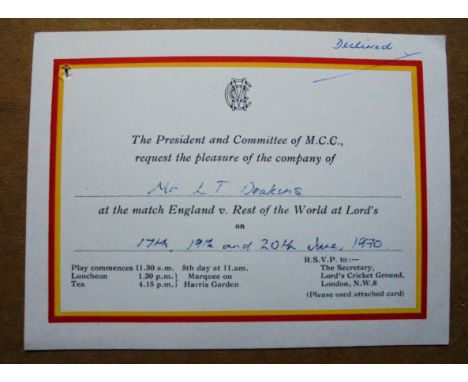 Declined
MCC
The President and Committee of M.C.C.,
request the pleasure of the company of
Mr L T Deakins
at the match England v. Rest of the World at Lord's
on
17th, 19th and 20th June, 1970
Play commences 11.30 a.m. 5th day at 11.am.
Luncheon 1.30 p.m. } Marquee on
Tea 4.15 p.m. } Harris Garden
R.S.V.P. to:—
The Secretary,
Lord's Cricket Ground,
London, N.W.8
(Please used attached card)